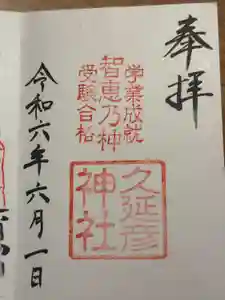 奉拝
学業成就
智恵乃神
受験合格
久延彦
神社
令和六年六月一日